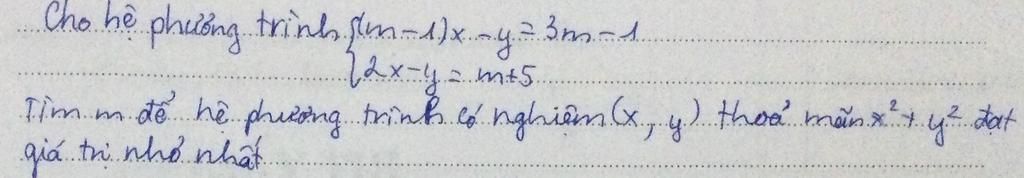 Cho hệ phương trình {(m-1)x-y=3m-1
{2x-y=m+5
Tìm m để hệ phương trình có nghiệm (x, y) thoả mãn x²+y² đạt
giá trị nhỏ nhất